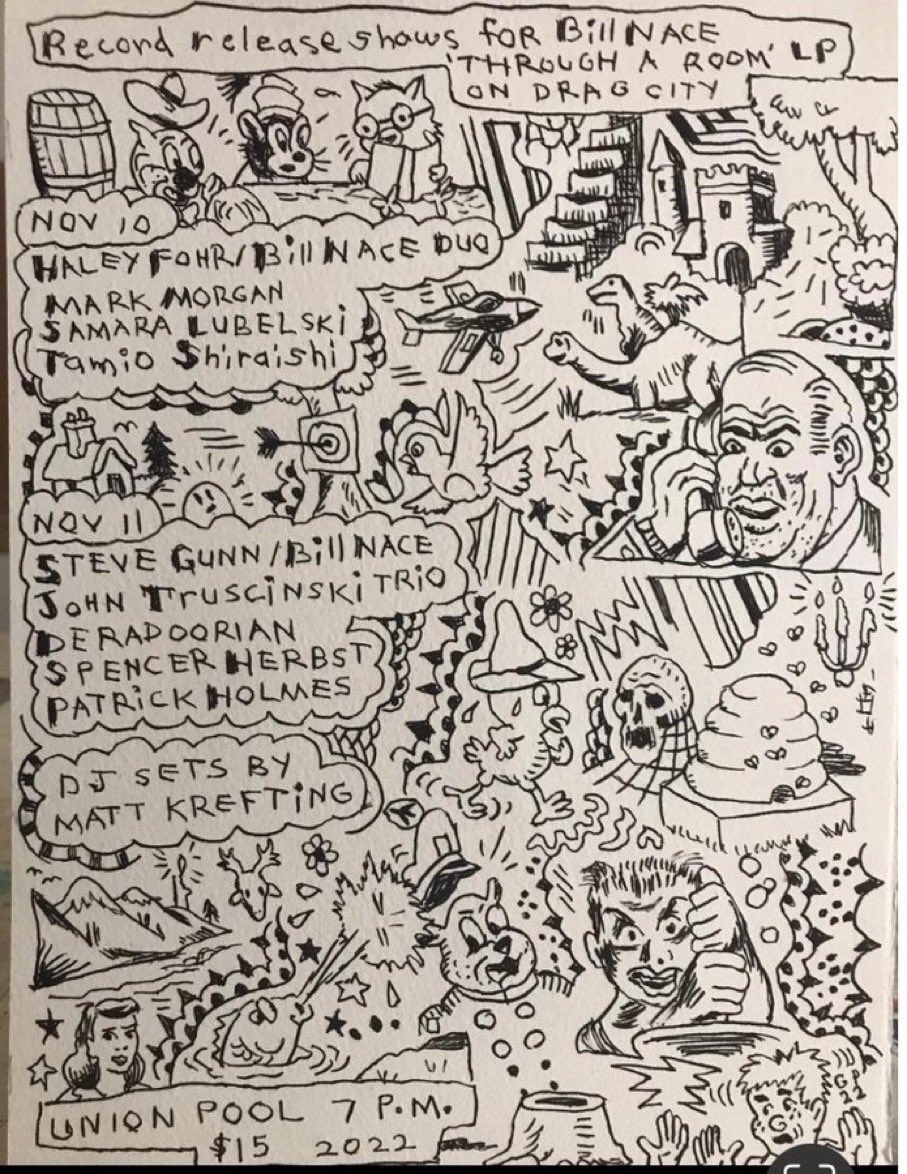 Record release shows for Bill NACE
'THROUGH A ROOM' LP
ON DRAG CITY
NOV 10
HALEY FOHR/Bill NACE DUO
MARK MORGAN
SAMARA LUBELSKi
Tamio Shiraishi
NOV 11
STEVE GUNN/Bill NACE
JOHN TRUSCiNSKi TRiO
DERADOORIAN
SPENCER HERBST
PATRICK HOLMES
DJ SETS BY
MATT KREFTiNG
UNION POOL 7 P.M.
$15 2022